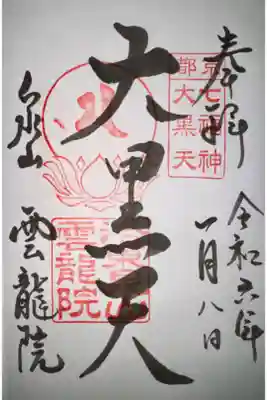 奉拝
京都
七福神
大黒天
令和六年
一月八日
大黒天
雲龍院
泉山 雲龍院